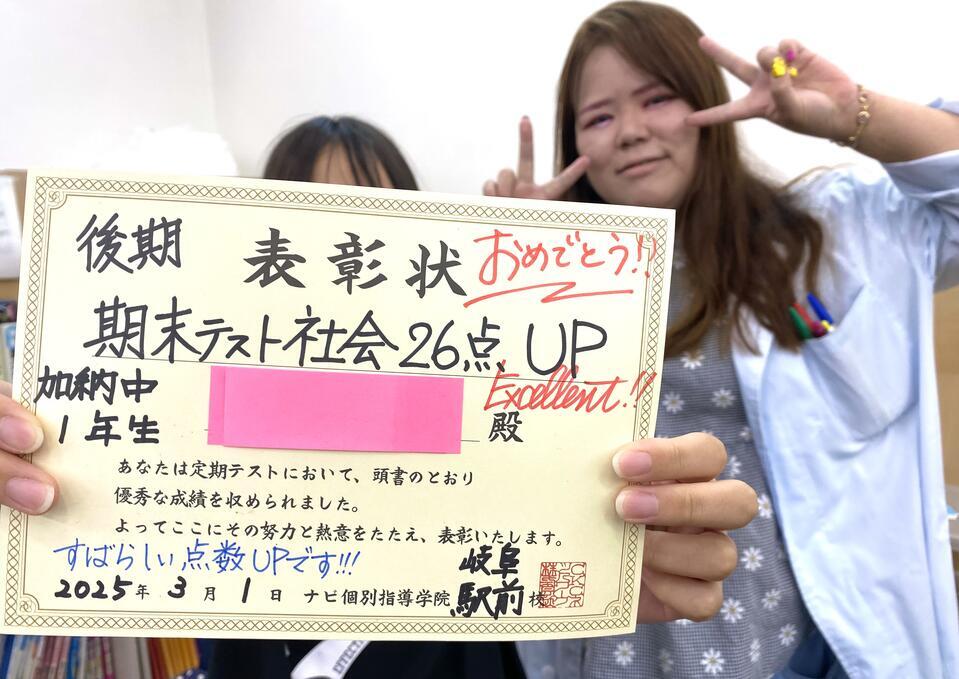 後期 表彰状 おめでとう!!
期末テスト社会26点 UP
Excellent!!
加納中
1年生 殿
あなたは定期テストにおいて、頭書のとおり
優秀な成績を収められました。
よってここにその努力と熱意をたたえ、表彰いたします。
すばらしい点数UPです!!!
2025年 3月 1日 ナビ個別指導学院 岐阜駅前校